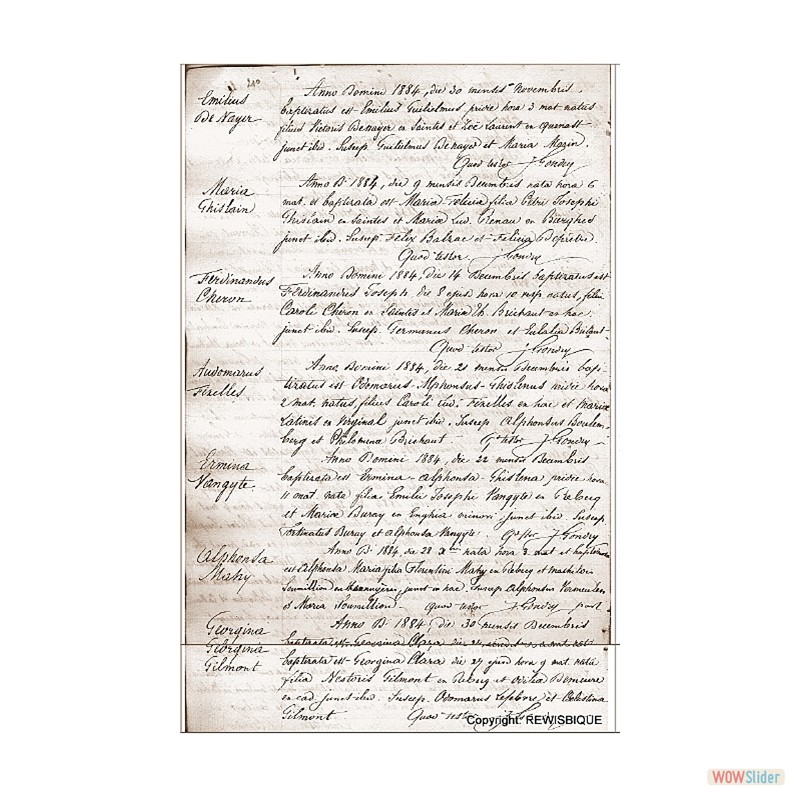 Emilius
De Nayer
Anno Domini 1884, die 30 mensis Novembris
baptizatus est Emilius Guilielmus pridie hora 3 mat. natus
filius Victoris Denayer ex Saintes et Zoë Laurent ex Quenast
junct. ibid. Suscep. Guilielmus Denayer et Maria Mazin.
Quod testor J. Gondry
Maria
Ghislain
Anno D. 1884, die 9 mensis Decembris nata hora 6
mat. et baptizata est Maria Felicia filia Petri Josephi
Ghislain ex Saintes et Maria Lud. ex
junct. ibid. Suscep. Felix Balzac et Felicia Depretre.
Quod testor. J. Gondry
Ferdinandus
Cheron
Anno Domini 1884, die 14 Decembris baptizatus est
Ferdinandus Joseph, die 8 ejusd. hora 10 natus, filius
Caroli Cheron ex Saintes et Maria Th. Brichaut ex hac
junct. ibid. Suscep. Germanus Cheron et Eulalia
Quod testor J. Gondry
Audomarus
Fixelles
Anno Domini 1884, die 21 mensis Decembris bap-
tizatus est Odomarus Alphonsus Ghislenus hora
2 mat. natus, filius Caroli Lud. Fixelles ex hac et Mariæ
Latinis ex Virginal junct. ibid. Suscep. Alphonsus Boulem-
berg et Philomena Brichaut Q. testor J. Gondry
Ermina
Vangyte.
Anno Domini 1884, die 22 mensis Decembris
baptizata est Ermina Alphonsa Ghislena pridie hora
11 mat. nata filia Emilii Josephi Vangyte ex Rebecq
et Mariæ Buray ex Enghien junct. ibid. Suscep.
Fortunatus Buray et Alphonsa Vangyte. J. Gondry
Alphonsa
Mahy
Anno D. 1884, die 28 Xbris nata hora 3 mat. et baptizata
est Alphonsa Maria filia Florentini Mahy ex Rebecq et
Soumillion ex junct. in hac. Suscep. Alphonsus Vermeulen
et Maria Soumillion. Quod testor J. Gondry
Georgina
Georgina
Gilmont
Anno D. 1884, die 30 mensis Decembris
baptizata est Georgina Clara die 27
baptizata est Georgina Clara die 27 ejusd. hora 9 mat. nata
filia Nestoris Gilmont ex Rebecq et Odilia Demeure
ex ead. junct. ibid. Suscep. Odomarus Lefebvre et Celestina
Gilmont Quod testor J. Gondry
Copyright: REWISBIQUE
WOWSlider